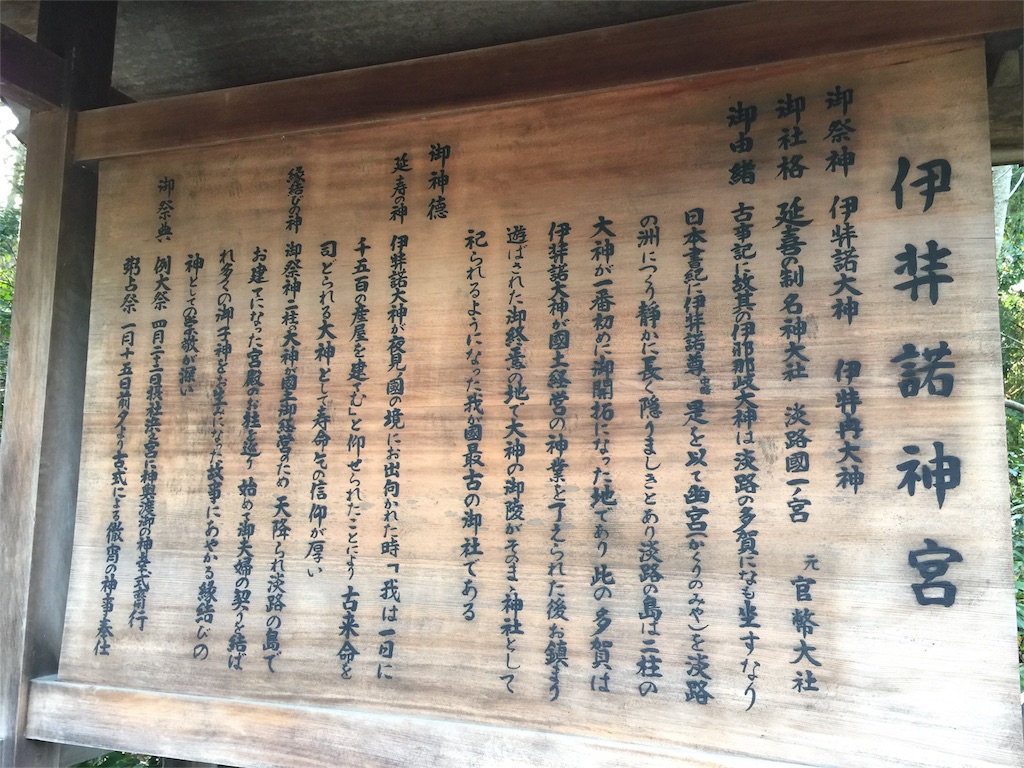 伊弉諾神宮
御祭神 伊弉諾大神 伊弉冉大神
御社格 延喜の制 名神大社 淡路國一ノ宮 元 官幣大社
御由緒 古事記に故其の伊邪那岐大神は淡路の多賀になも坐すなり
日本書紀に伊弉諾尊 是を以て幽宮(かくりのみや)を淡路
の洲につくり静かに長く隠りましきとあり淡路の島は二柱の
大神が一番初めに御開拓になった地であり此の多賀は
伊弉諾大神が國土経営の神業を了えられた後お鎮まり
遊ばされた御終焉の地で大神の御陵がそのまゝ神社として
祀られるようになった我が國最古の御社である
御神徳
延寿の神 伊弉諾大神が夜見ノ國の境にお出向かれた時「我は一日に
千五百の産屋を建てむ」と仰せられたことにより古来命を
司どられる大神として寿命乞の信仰が厚い
縁結びの神 御祭神二柱の大神が國土御経営のため天降られ淡路の島で
お建てになった宮殿の真柱を巡り始めて御夫婦の契りを結ば
れ多くの御子神をお生みになった故事にあやかる縁結びの
神としての崇敬が深い
御祭典
例大祭 四月二十二日 我社浜ノ宮に神輿渡御の神幸式斎行
粥占祭 一月十五日前夕より古式による徹宵の神事奉仕